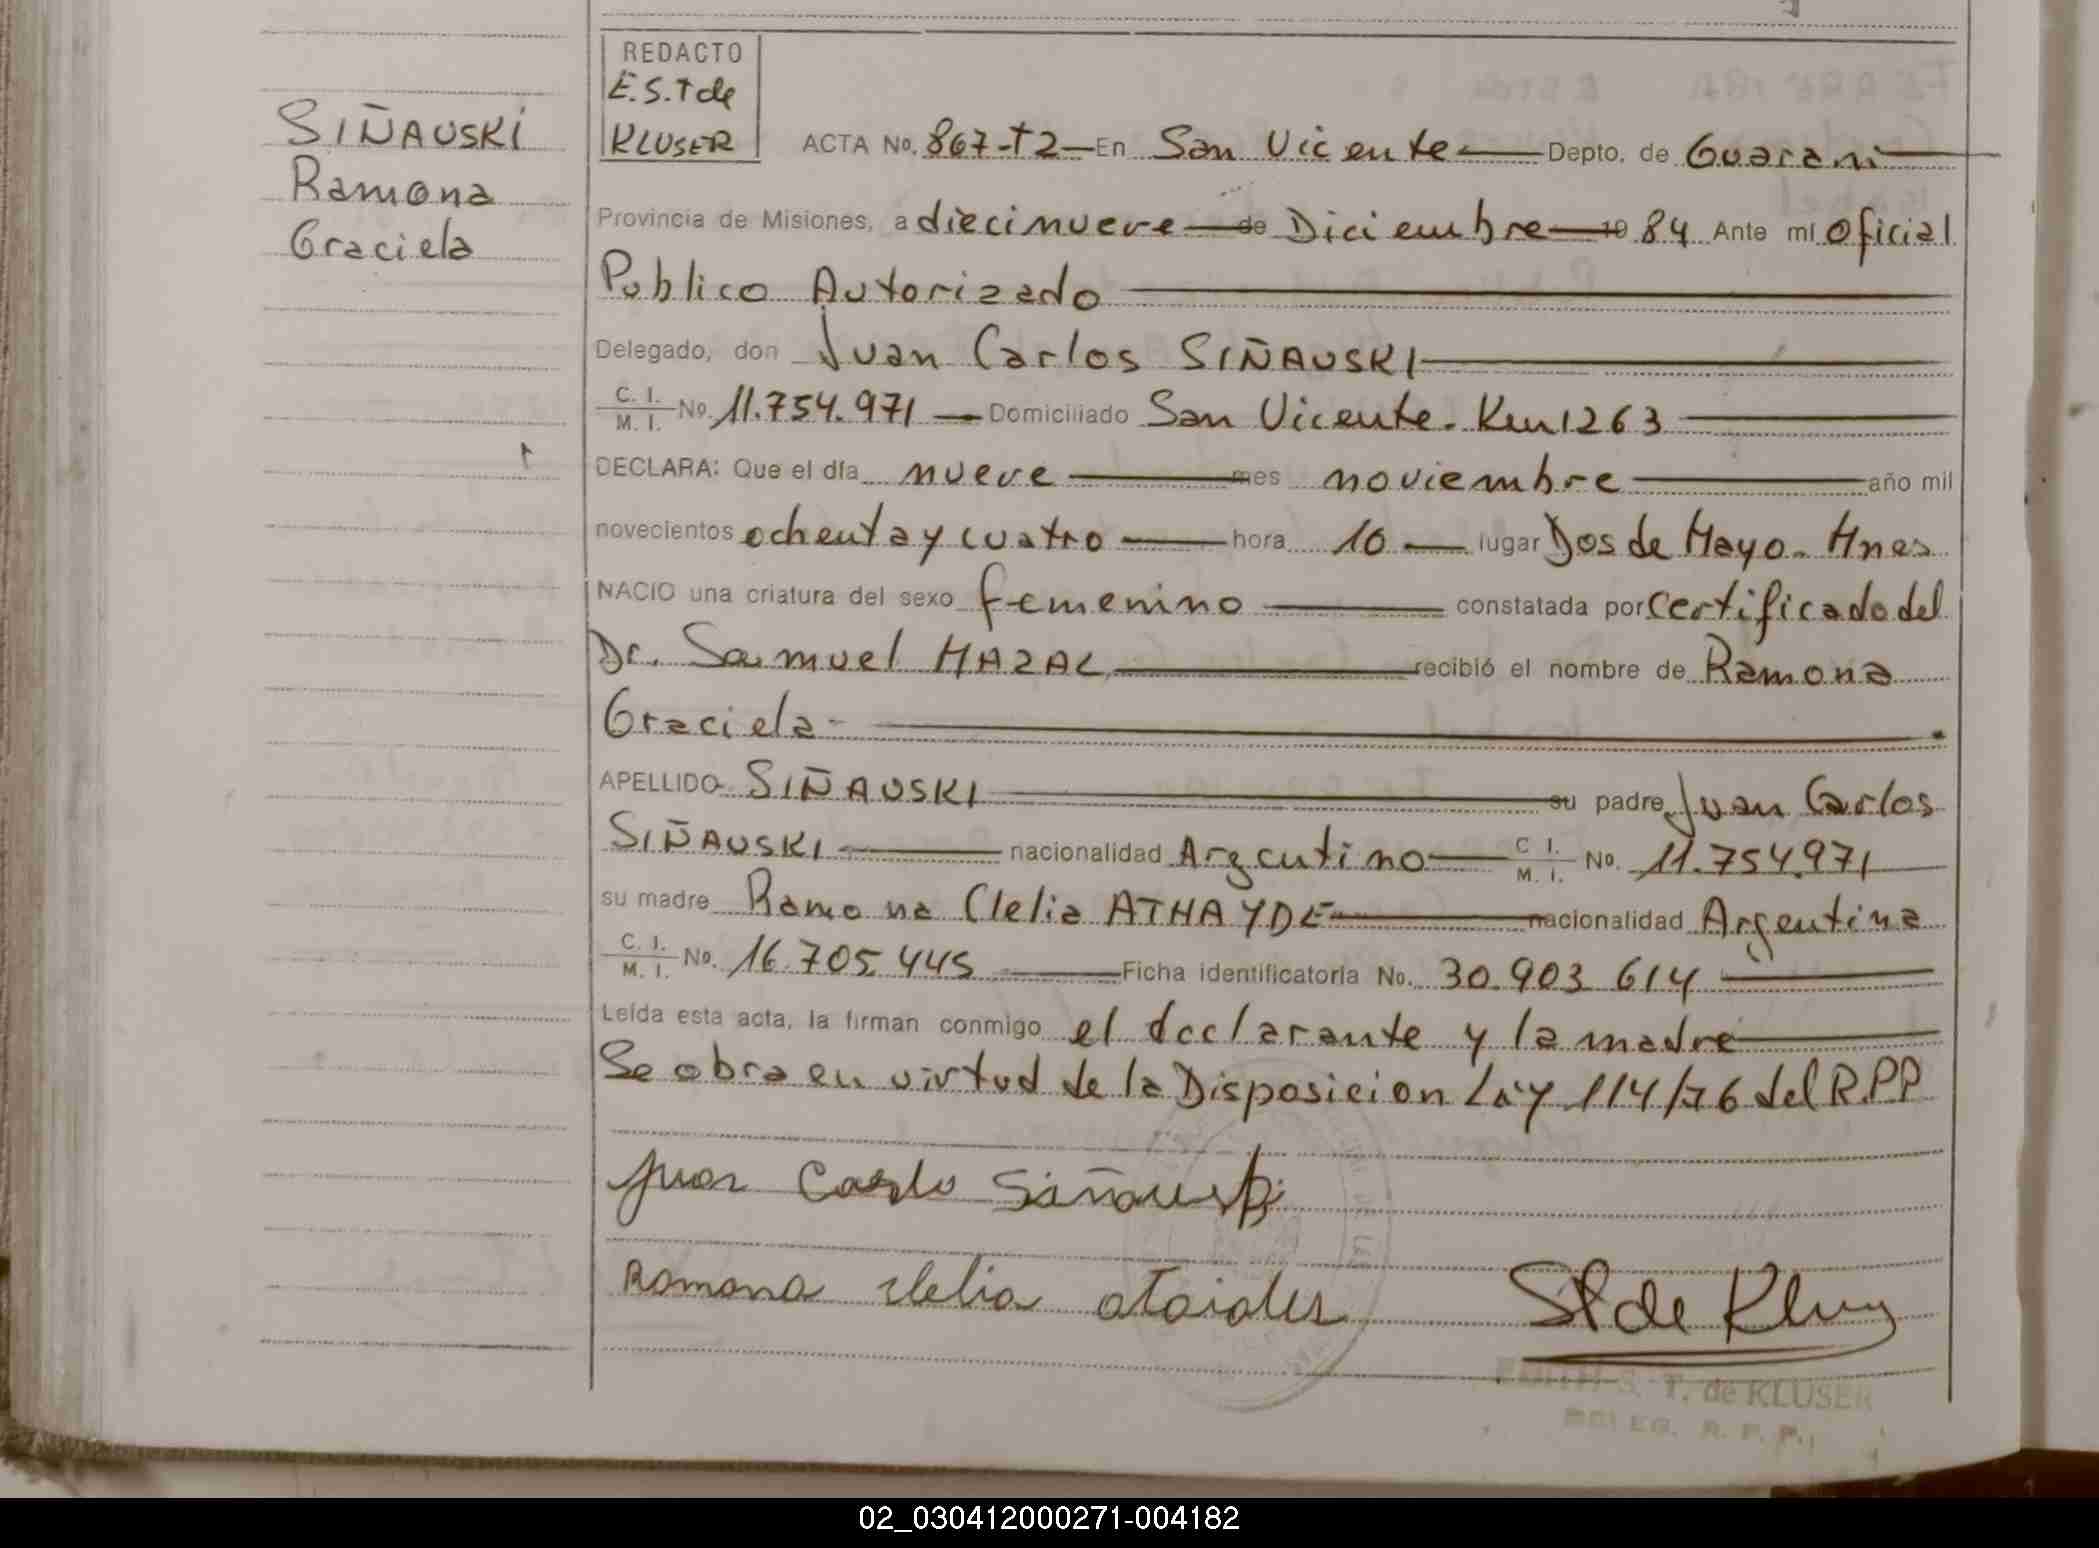 SIÑAUSKI
Ramona
Graciela
REDACTO
E.S.T de
KLUSER
ACTA No. 867-T2 En San Vicente Depto. de Guarani
Provincia de Misiones, a diecinueve de Diciembre 19 84 Ante mí Oficial
Publico Autorizado
Delegado, don Juan Carlos SIÑAUSKI
C. I.
M. I. No. 11.754.971 Domiciliado San Vicente. Km 1263
DECLARA: Que el día nueve mes noviembre año mil
novecientos ochenta y cuatro hora 10 lugar Dos de Mayo. Mnes
NACIO una criatura del sexo femenino constatada por certificado del
Dr. Samuel MAZAL recibió el nombre de Ramona
Graciela
APELLIDO SIÑAUSKI su padre Juan Carlos
SIÑAUSKI nacionalidad Argentino C. I.
M. I. No. 11.754.971
su madre Ramona Clelia ATHAYDE nacionalidad Argentina
C. I.
M. I. No. 16.705.445 Ficha identificatoria No. 30.903 614
Leída esta acta, la firman conmigo el declarante y la madre
Se obra en virtud de la Disposicion Ley 114/76 del R.P.P
Juan Carlo Siñauski
Ramona Clelia
St de Kluser
EDITH S. T. de KLUSER
DELEG. R. P. P.
02_030412000271-004182